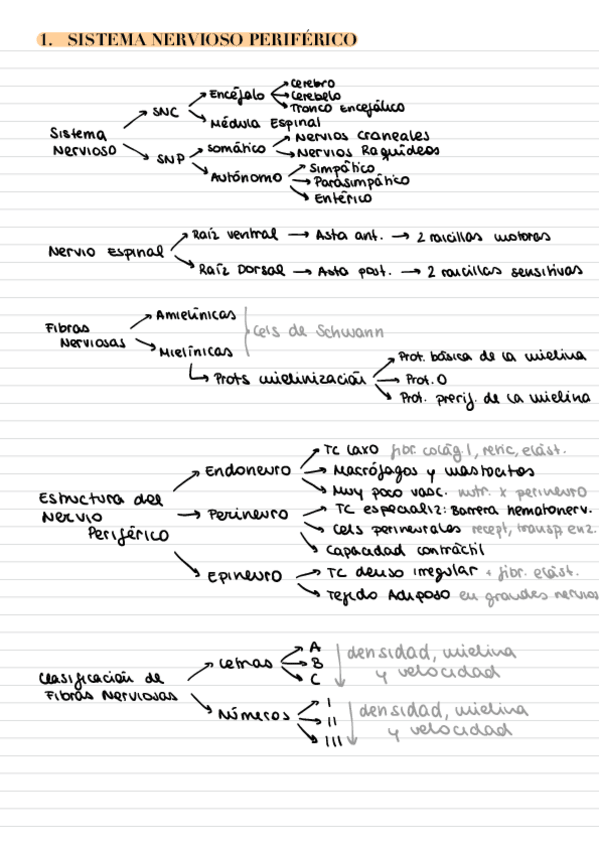 1. SISTEMA NERVIOSO PERIFÉRICO
Sistema Nervioso
SNC
Encéfalo
Cerebro
Cerebelo
Tronco Encefálico
Médula Espinal
SNP
Somático
Nervios Craneales
Nervios Raquídeos
Autónomo
Simpático
Parasimpático
Entérico
Nervio Espinal
Raíz ventral → Asta ant. → 2 raicillas motoras
Raíz Dorsal → Asta post. → 2 raicillas sensitivas
Fibras Nerviosas
Amielínicas
Mielínicas
Cels de Schwann
Prots mielinización
Prot. básica de la mielina
Prot. 0
Prot. prerif. de la mielina
Estructura del Nervio Periférico
Endoneuro
TC laxo fibr. colág 1, retic, elást.
Macrófagos y mastocitos
Muy poco vasc. nutr. x perineuro
Perineuro
TC especializ: Barrera hematonerv.
Cels perineurales recept, transp, enz.
Capacidad contráctil
Epineuro
TC denso irregular + fibr. elást.
Tejido Adiposo en grandes nervios
Clasificación de Fibras Nerviosas
Letras
A
B
C
densidad, mielina y velocidad
Números
I
II
III
densidad, mielina y velocidad